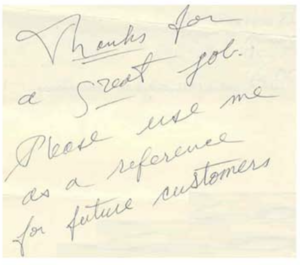 Thanks for
a Great job.
Please use me
as a reference
for future customers